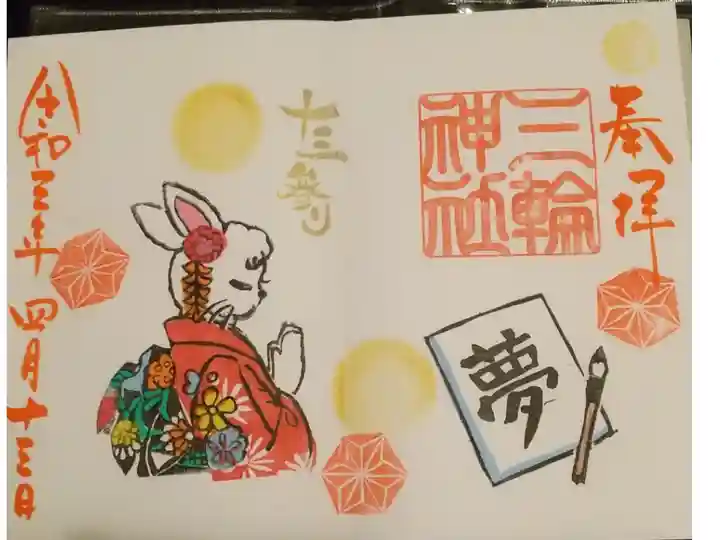 奉拝
三輪
神社
夢
十三参り
令和三年 四月十三日